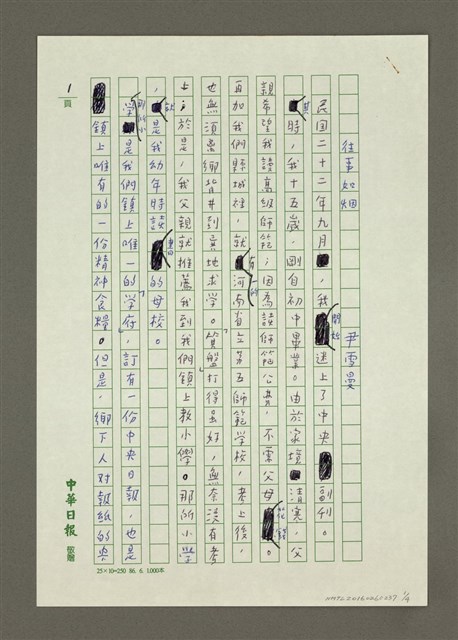 往事如烟
尹雪曼
民国二十二年九月，我開始迷上了中央副刊。
其時，我十五歲，剛自初中畢業。由於家境清寒，父
親希望我讀高級師範；因為讀師範公費，不需父母花錢。
再加我們縣城裡，就有一所河南省立第五師範學校，考上後，
也無須離鄉背井到異地求学。「算盤」打得虽好，無奈没有考
上；於是，我父親就推薦我到我們鎮上教小學。那所小学
，就是我幼年時讀書的母校。
那所小学是我們鎮上唯一的「学府」，訂有一份中央日報，也是
鎮上唯有的一份精神食糧。但是，鄉下人对報紙的興
1
頁
中華日報
25×10=250 86. 6. 1,000本